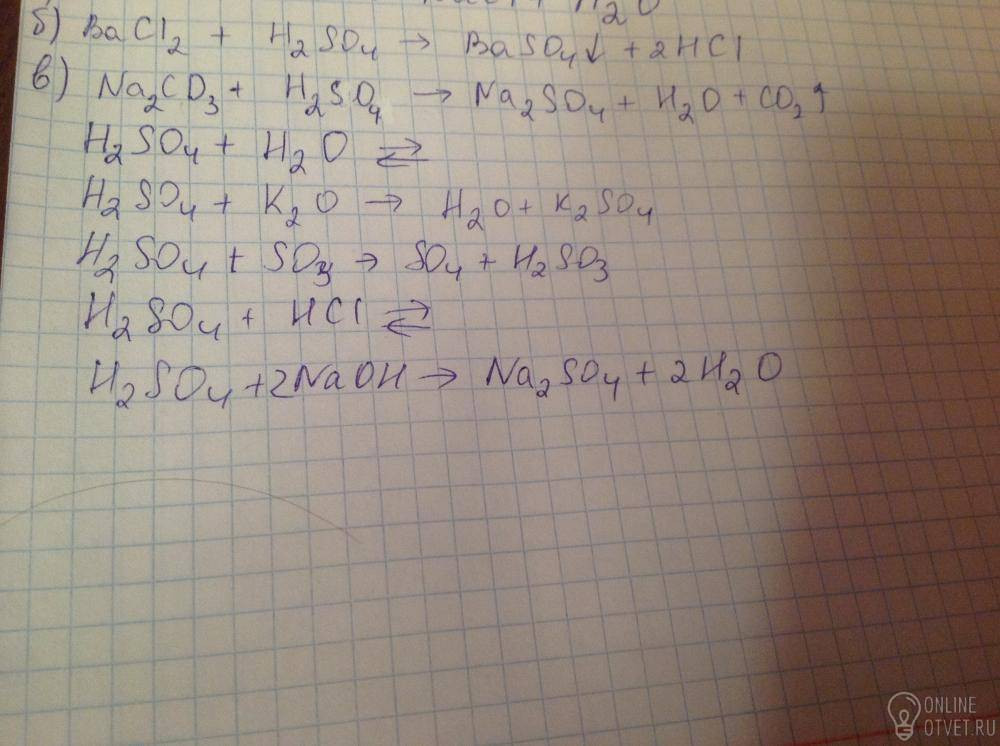 H₂O
б) BaCl₂ + H₂SO₄ → BaSO₄↓ + 2HCl
в) Na₂CO₃ + H₂SO₄ → Na₂SO₄ + H₂O + CO₂↑
H₂SO₄ + H₂O ⇄
H₂SO₄ + K₂O → H₂O + K₂SO₄
H₂SO₄ + SO₃ → SO₄ + H₂SO₃
H₂SO₄ + HCl ⇄
H₂SO₄ + 2NaOH → Na₂SO₄ + 2H₂O
ONLINE
OTVET.RU